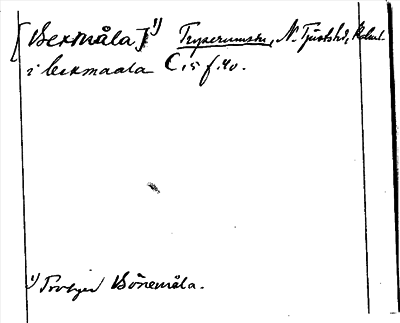 [Bexmåla] 1) Tryserumshr, N. Tjusts hd, Kalm l.
i bexmaala C 15 f. 40.
1) Troligen Bönemåla.